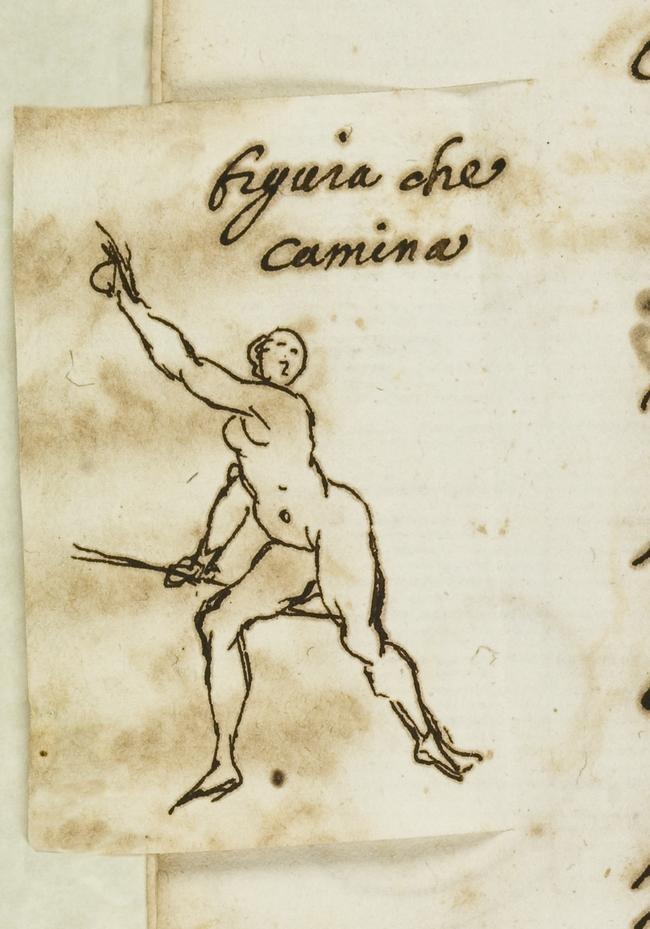 figura che
camina